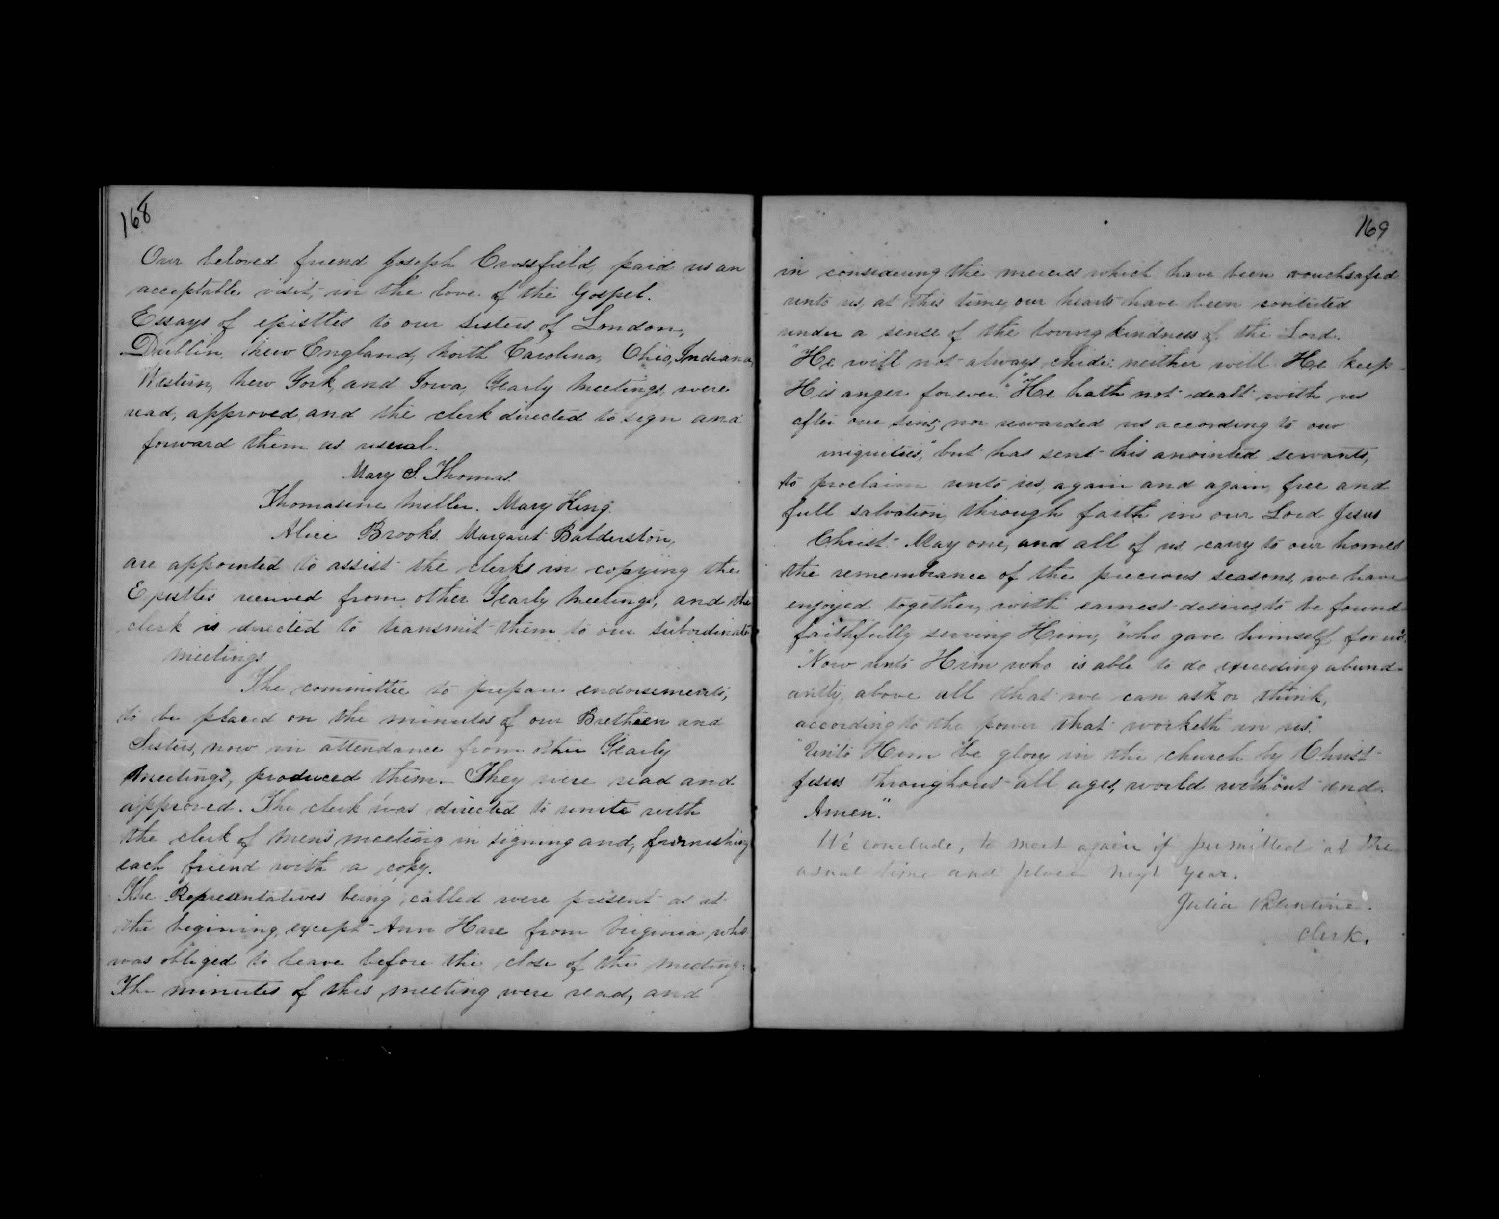 168
Our beloved friend Joseph Crossfield, paid us an
acceptable visit, in the love of the Gospel.
Essays of epistles to our sisters of London,
Dublin, New England, North Carolina, Ohio, Indiana,
Western, New York, and Iowa, Yearly Meetings, were
read, approved and the clerk directed to sign and
forward them as usual.
Mary S. Thomas.
Thomasine Miller. Mary King.
Alice Brooks. Margaret Balderston,
are appointed to assist the clerks in copying the
Epistles received from other Yearly Meetings, and the
clerk is directed to transmit them to our subordinate
meetings
The committee to prepare endorsements,
to be placed on the minutes of our Brethren and
Sisters, now in attendance from other Yearly
Meetings, produced them. They were read and
approved. The clerk was directed to unite with
the clerk of men's meeting in signing and, furnishing
each friend with a copy.
The Representatives being called were present as at
the begining, except Ann Hare from Virginia, who
was obliged to leave before the close of the meeting.
The minutes of this meeting were read, and
169
in considering the mercies which have been vouchsafed
unto us, at this time, our hearts have been contrited
under a sense of the loving kindness of the Lord.
"He will not always chide: neither will He keep
His anger forever." "He hath not dealt with us
after our sins, nor rewarded us according to our
iniquities", but has sent his anointed servants,
to proclaim unto us, again and again, free and
full salvation, through faith in our Lord Jesus
Christ. May one, and all of us carry to our homes
the remembrance of the precious seasons, we have
enjoyed together, with earnest desires to be found
faithfully serving Him, "who gave himself for us."
"Now unto Him who is able to do exceeding abund-
antly, above all that we can ask or think,
according to the power that worketh in us."
"Unto Him be glory in the church by Christ
Jesus throughout all ages, world without end.
Amen."
We conclude, to meet again if permitted at the
usual time and place next year.
Julia Valentine.
Clerk.